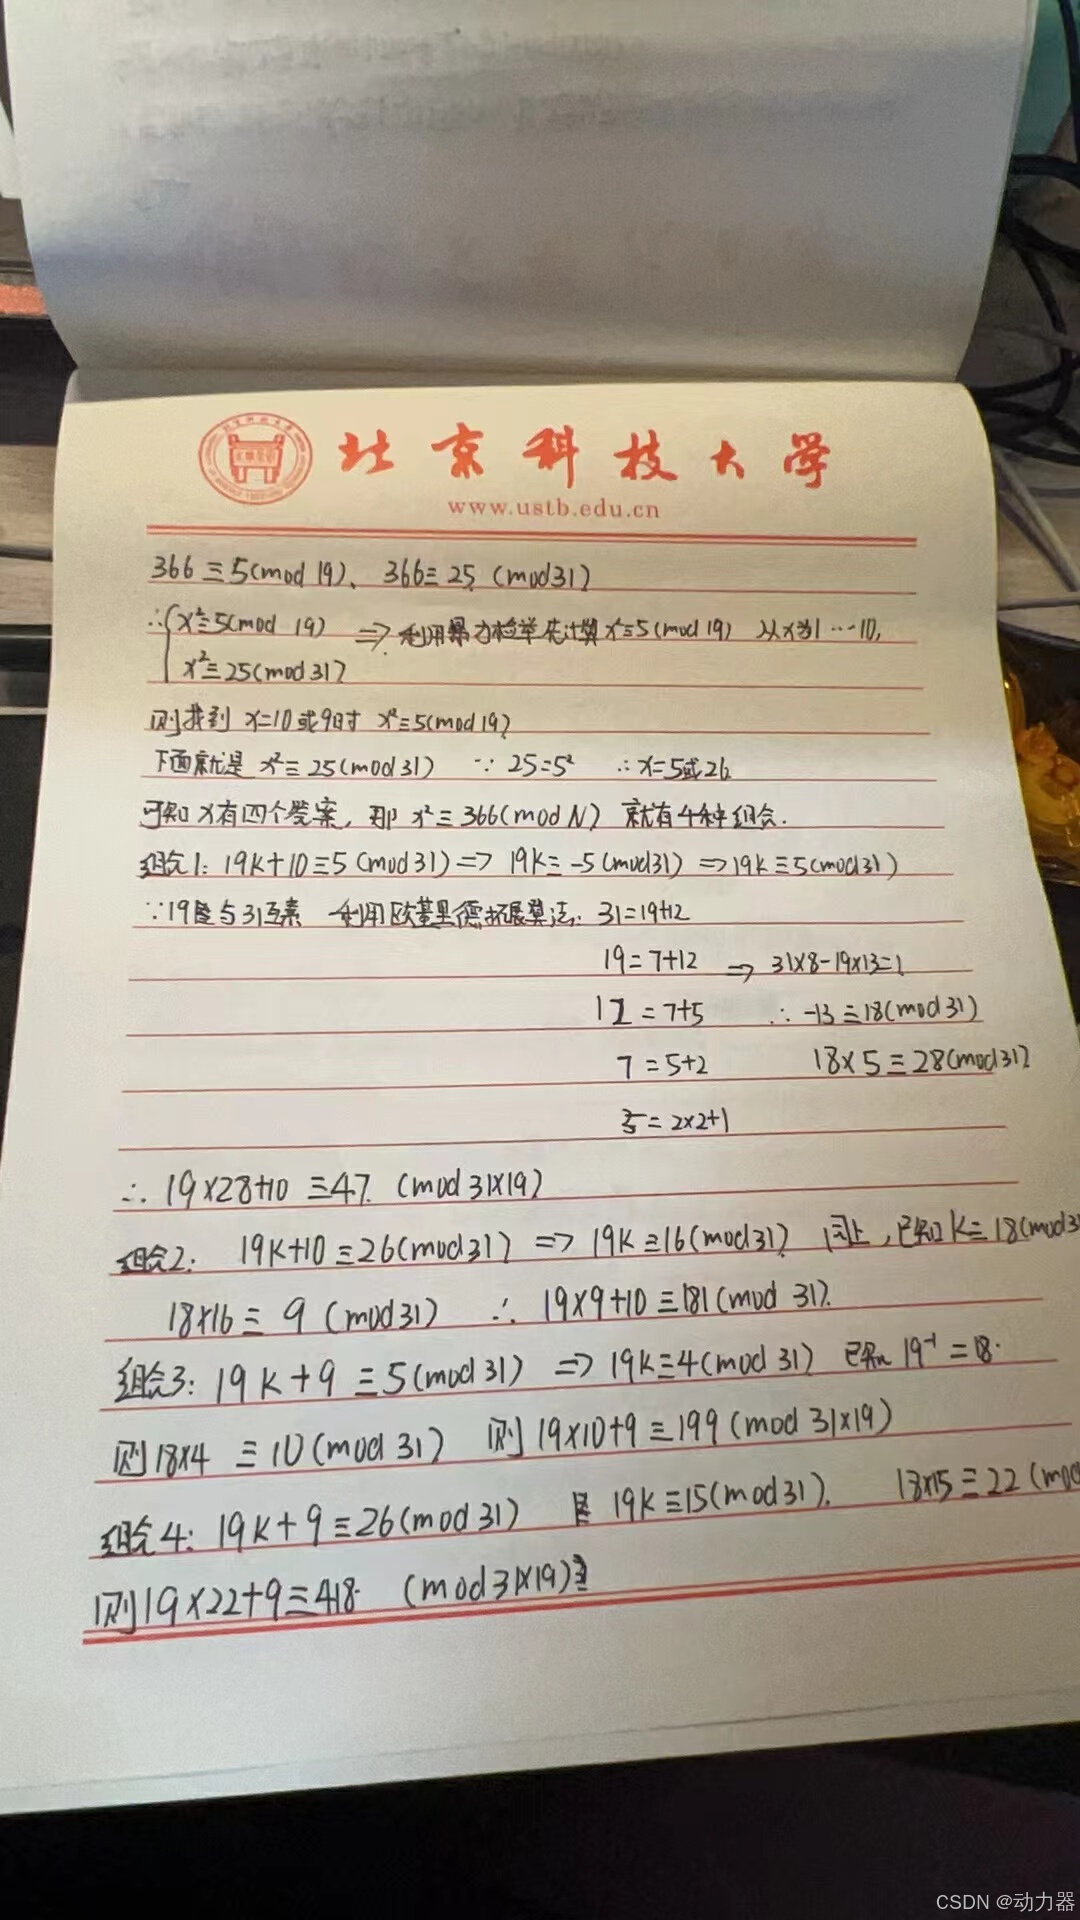 北京科技大学
www.ustb.edu.cn
366≡5(mod 19)、 366≡25 (mod31)
∴{x²≡5(mod 19) ⇒ 利用暴力检举先计算x²≡5(mod19) 从x为1…10,
x²≡25(mod31)
则找到 x=10或9时 x²≡5(mod19)
下面就是 x²≡25(mod31) ∵ 25=5² ∴x=5或26
可知x有四个答案, 那 x²≡366(mod N) 就有4种组合.
组合1: 19k+10≡5(mod31)⇒ 19k≡-5(mod31) ⇒19k≡5(mod31)
∵19与31互素 利用欧基里德拓展算法: 31=19+12
19=7+12 ⇒ 31×8-19×13=1
12=7+5 ∴-13≡18(mod31)
7=5+2 18×5≡28(mod31)
5=2×2+1
∴ 19×28+10≡47. (mod31×19)
组合2: 19k+10≡26(mod31) ⇒ 19k≡16(mod31) 同上,已知k≡18(mod3
18×16≡ 9 (mod31) ∴ 19×9+10≡181(mod 31).
组合3: 19k+9≡5(mod31) ⇒ 19k≡4(mod31) 已知 19⁻¹=18.
则18×4 ≡10(mod 31) 则19×10+9≡199(mod 31×19)
组合4: 19k+9≡26(mod31) 19k≡15(mod31). 18×15≡22(mod
则19×22+9≡418. (mod31×19)
CSDN @动力器